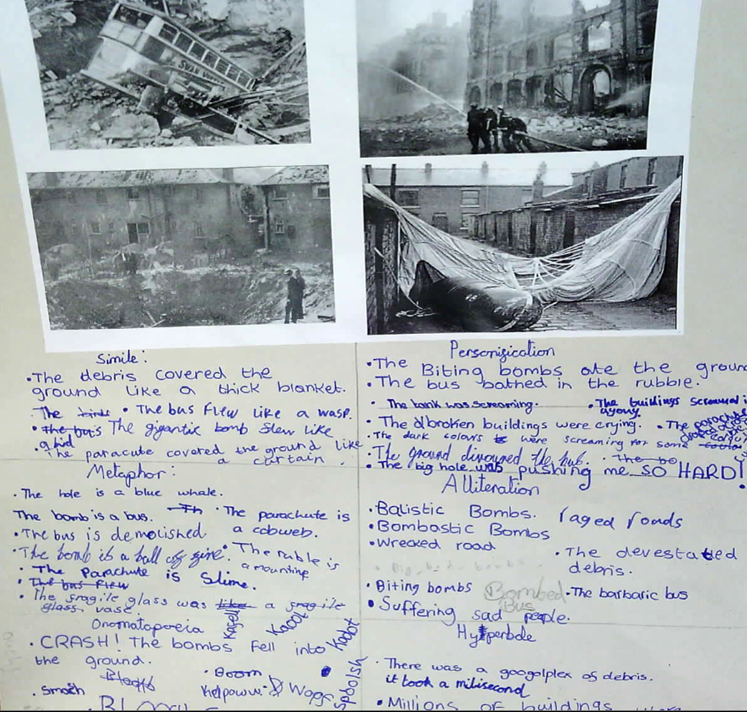 Simile:
•The debris covered the
ground like a thick blanket.
The • The bus flew like a wasp.
•The bus The gigantic bomb flew like
a kid
•The paracute covered the ground like
a curtain.
Metaphor:
•The hole is a blue whale.
The bomb is a bus. •Th
•The parachute is
a cobweb.
•The bus is demolished
•The bomb is a ball of fire.
•The ruble is
a mounting
•The Parachute is Slime.
•The bus flew
•The fragile glass was like a fragile
glass vase.
Onomatopoeia
•CRASH! The bombs fell into
the ground.
•Boom
•Smash
Personification
•The Biting bombs ate the groun
•The bus bathed in the rubble.
•The bank was screaming.
•The buildings screamed i
agony.
•The broken buildings were crying.
•The parachute
•The dark colours were screaming for some
•The ground divoured the bus. •The bo
•The big hole was pushing me SO HARD!
Alliteration
•Balistic Bombs.
raged roads
•Bombastic Bombs
•Wrecked road
•The devestated
debris.
•Biting bombs
Bombed
Bus
•The barbaric bus
•Suffering sad people.
Hyperbole
•There was a googolplex of debris.
it took a milisecond
•Millions of buildings were